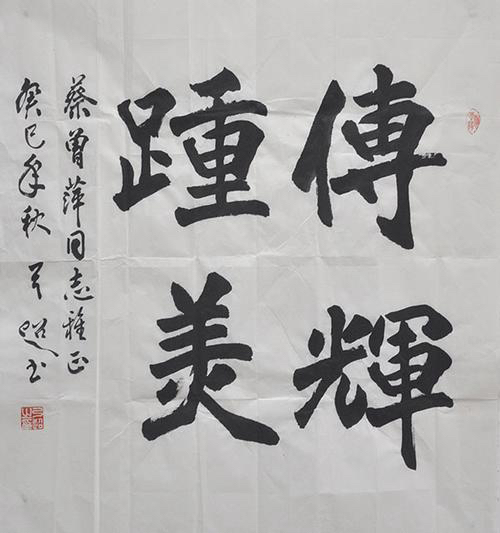 傳輝
踵美
蔡曾萍同志雅正
癸巳年秋 超书